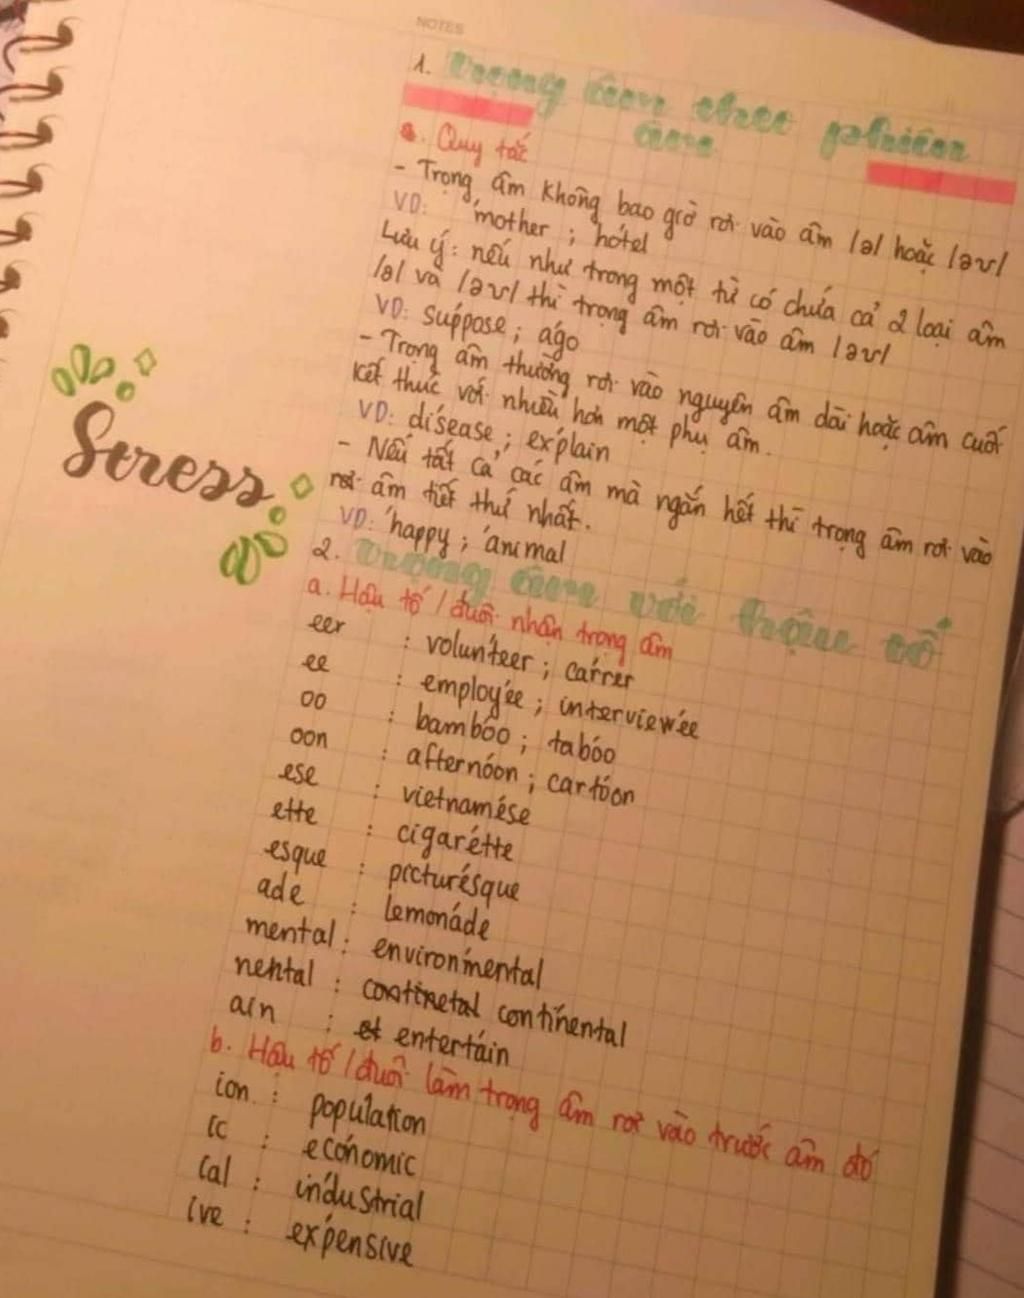 NOTES
1. Trọng âm theo phiên
âm
a. Quy tắc
- Trọng âm không bao giờ rơi vào âm /ə/ hoặc /əʊ/
VD: 'mother ; hó​tel
Lưu ý: nếu như trong một từ có chứa cả 2 loại âm
/ə/ và /əʊ/ thì trọng âm rơi vào âm /əʊ/
VD: sup'pose ; a'go
- Trọng âm thường rơi vào nguyên âm dài hoặc âm cuối
kết thúc với nhiều hơn một phụ âm.
VD: di'sease ; ex'plain
- Nếu tất cả các âm mà ngắn hết thì trọng âm rơi vào
rơi âm tiết thứ nhất.
VD: 'happy ; 'animal
Stress
2. Trọng âm với hậu tố
a. Hậu tố / đuôi nhận trọng âm
eer : volun'teer ; ca'rrer
ee : employ'ee ; interview'ee
oo : bam'boo ; ta'boo
oon : after'noon ; car'toon
ese : vietna'mese
ette : ciga'rette
esque : pictur'esque
ade : lemo'nade
mental : environ'mental
nental : continetal conti'nental
ain : et enter'tain
b. Hậu tố / đuôi làm trọng âm rơi vào trước âm đó
ion : popu'lation
ic : e'conomic
ial : in'dustrial
ive : ex'pensive